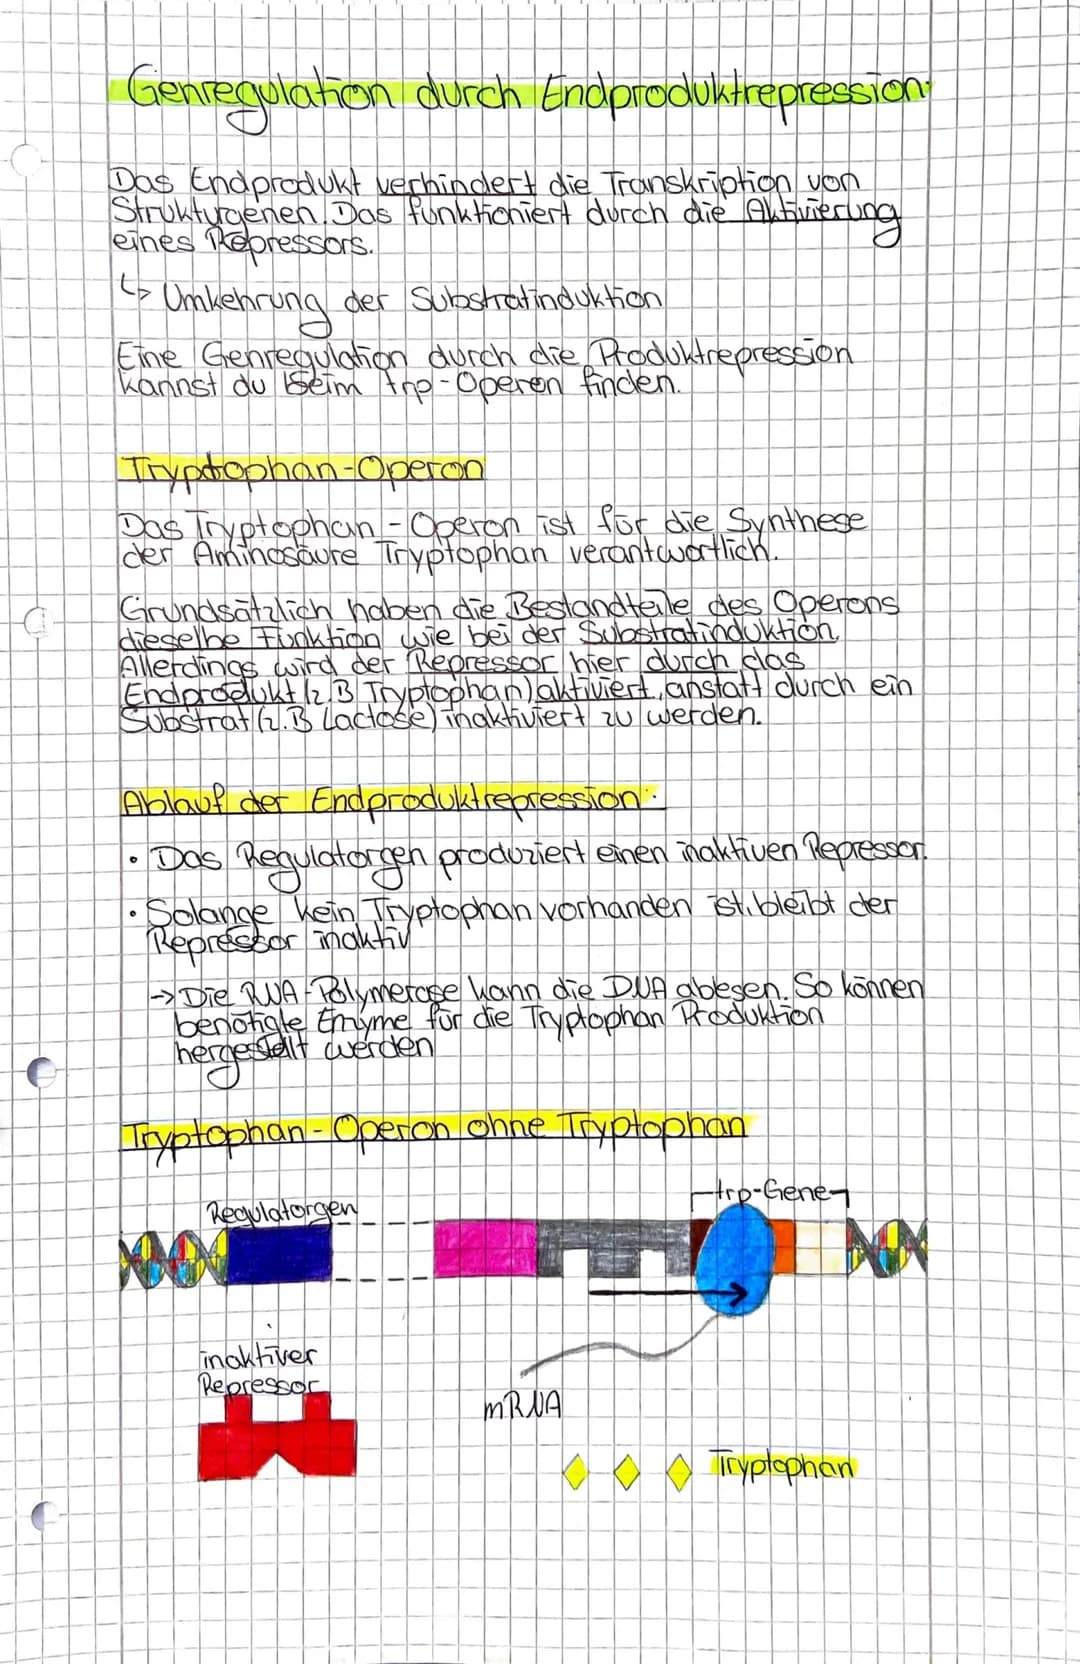 Genregulation durch Endproduktrepression:
Das Endprodukt verhindert die Transkription von
Strukturgenen. Das funktioniert durch die Aktivierung
eines Repressors.
↳ Umkehrung der Substratinduktion
Eine Genregulation durch die Produktrepression
kannst du beim trp-Operon finden.
Tryptophan-Operon
Das Tryptophan-Operon ist für die Synthese
der Aminosäure Tryptophan verantwortlich.
Grundsätzlich haben die Bestandteile des Operons
dieselbe Funktion wie bei der Substratinduktion.
Allerdings wird der Repressor hier durch das
Endprodukt (z.B Tryptophan) aktiviert, anstatt durch ein
Substrat (z.B Lactose) inaktiviert zu werden.
Ablauf der Endproduktrepression:
• Das Regulatorgen produziert einen inaktiven Repressor.
• Solange kein Tryptophan vorhanden ist, bleibt der
Repressor inaktiv
→ Die RNA-Polymerase kann die DNA ablesen. So können
benötigte Enyme für die Tryptophan Produktion
hergestellt werden
Tryptophan-Operon ohne Tryptophan
trp-Gene
Regulatorgen
inaktiver
Repressor
mRNA
Tryptophan